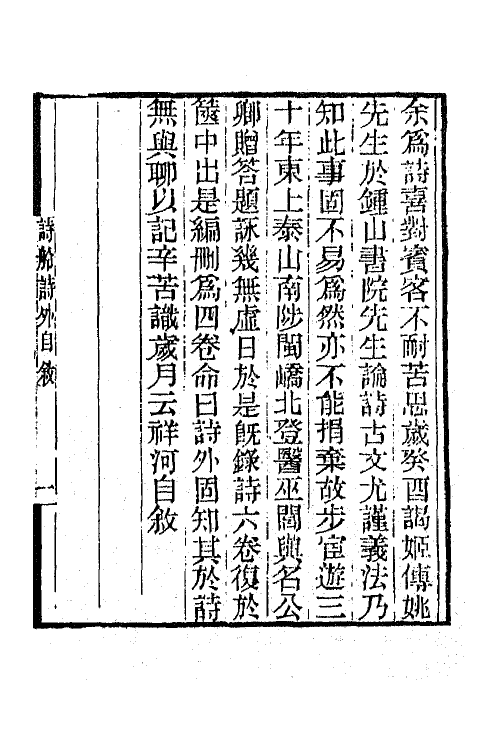 余爲詩喜對賓客不耐苦思歲癸酉謁姬傳姚
先生於鍾山書院先生論詩古文尤謹義法乃
知此事固不易爲然亦不能捐棄故步宦遊三
十年東上泰山南陟閩嶠北登醫巫閭與名公
卿贈答題詠幾無虛日於是旣錄詩六卷復於
篋中出是編刪爲四卷命曰詩外固知其於詩
無與聊以記辛苦識歲月云祥河自敘
詩舲詩外自敘
一